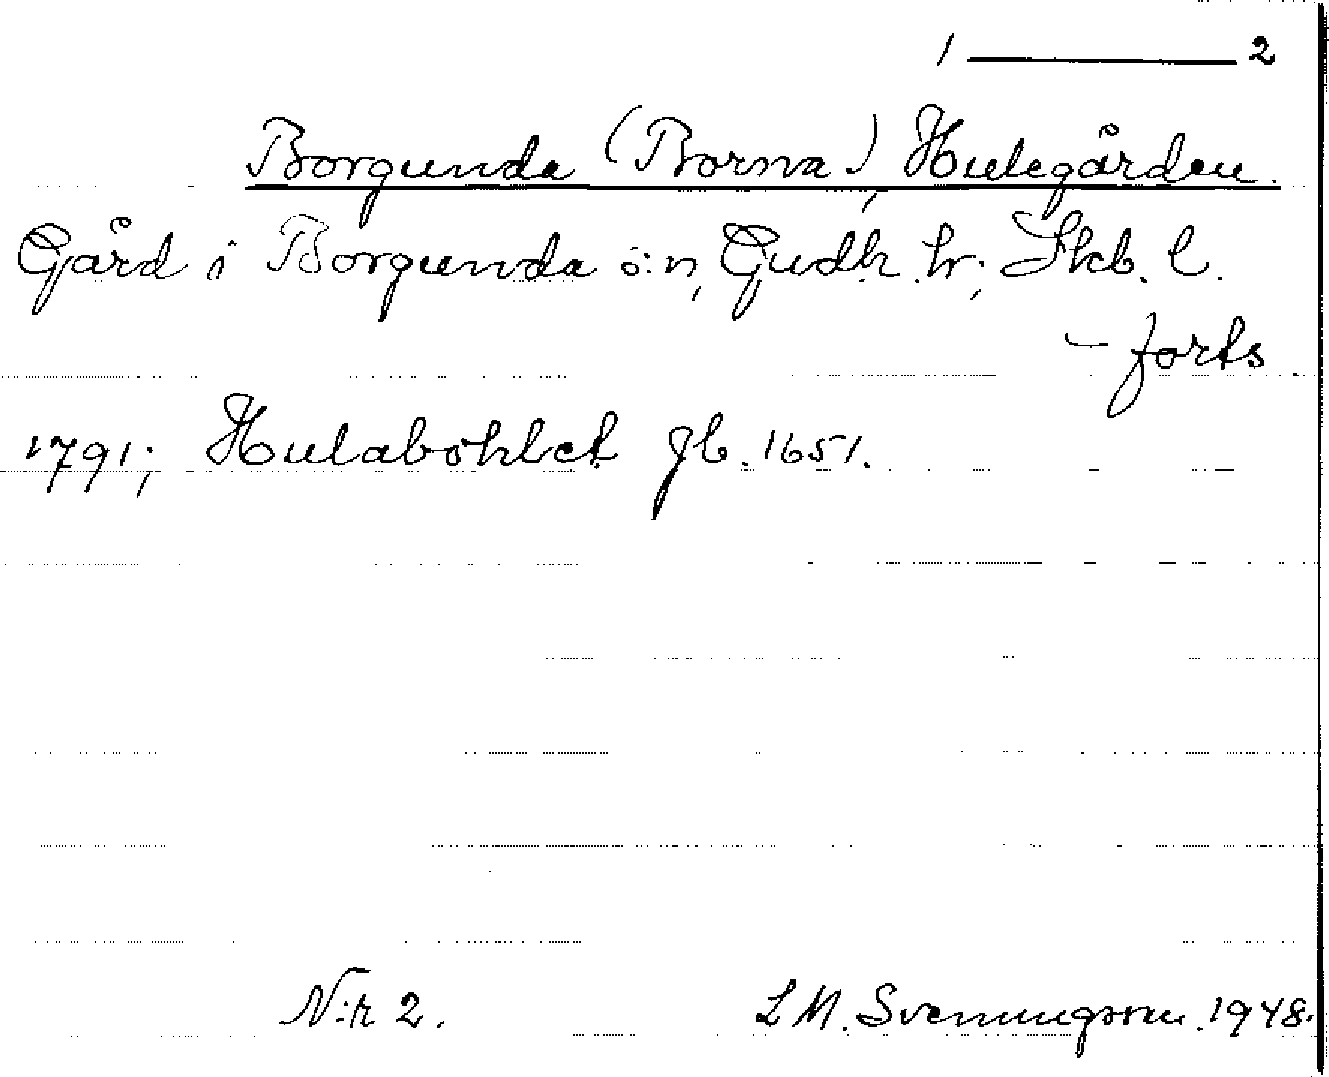 1 ——— 2
Borgunda (Borna), Hulegården.
Gård i Borgunda s:n, Gudh. hr; Skb. l.
– forts
1791; Hulaböhlet jb. 1651.
N:r 2. L M. Svenungsson. 1948.